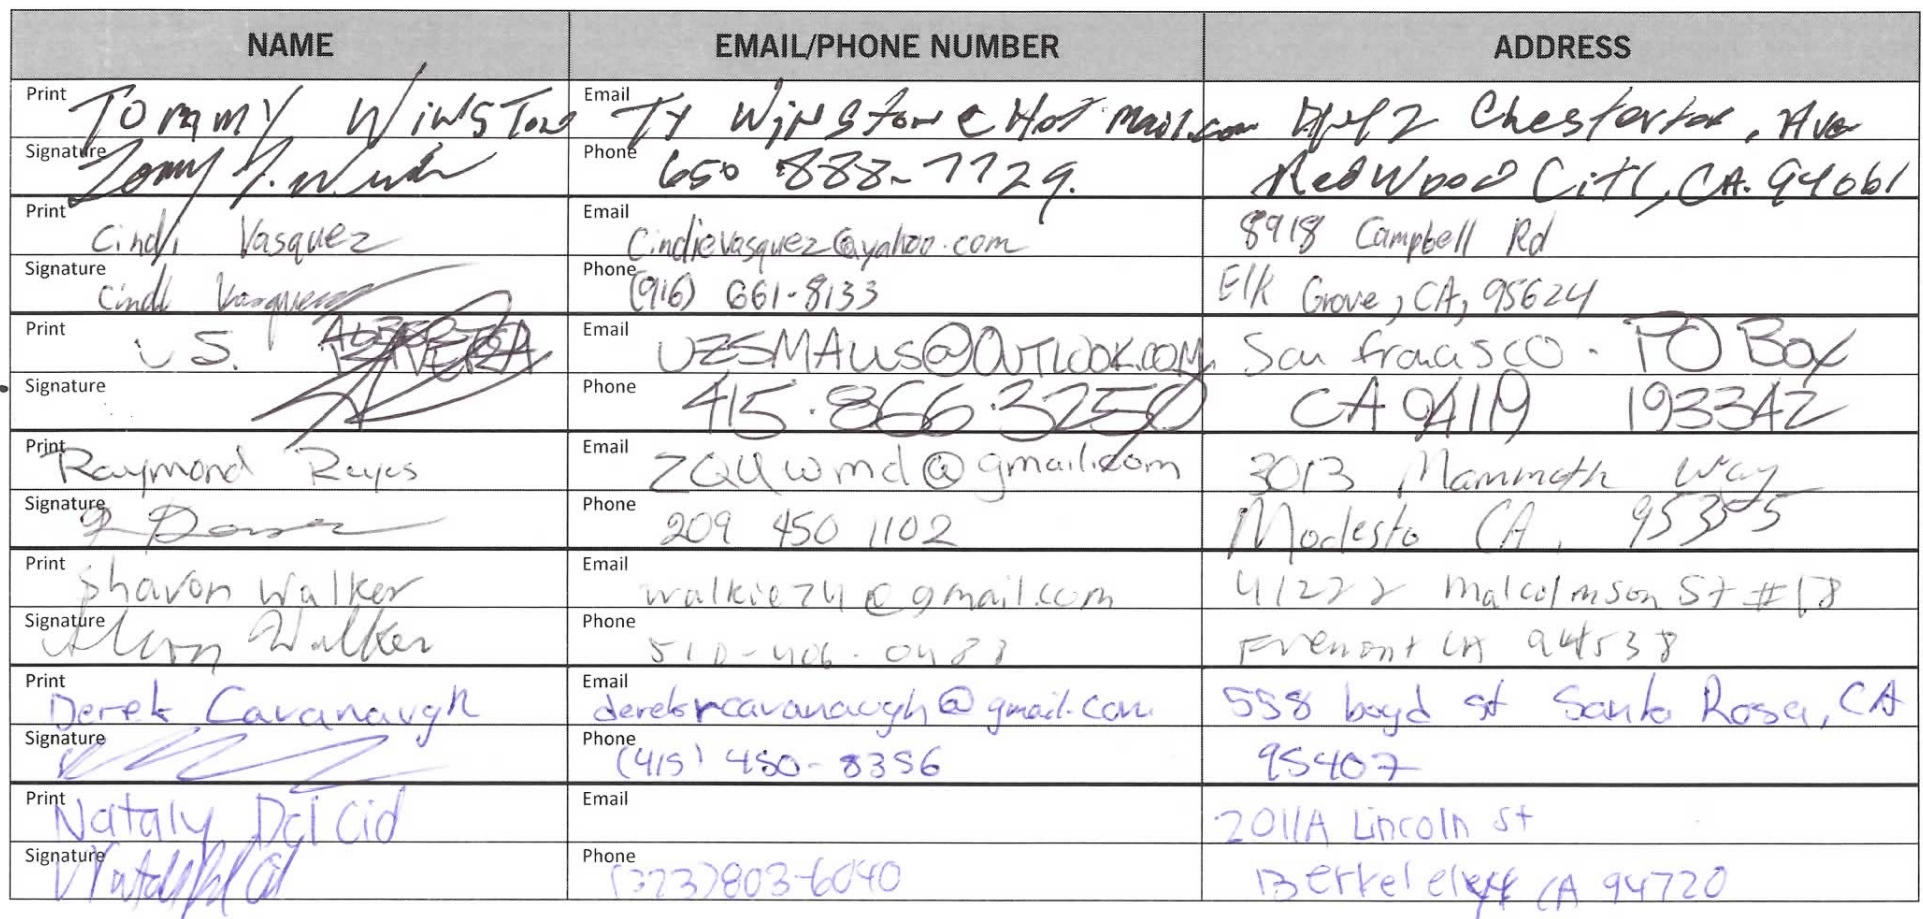 NAME EMAIL/PHONE NUMBER ADDRESS
Print Tommy Winston Email TyWinston@Hotmail.com Chesterton, Ave
Signature Phone 650 888-7729. Redwood City, CA. 94061
Print Cindi Vasquez Email Cindievasquez@yahoo.com 8918 Campbell Rd
Signature Cindi Vasquez Phone (916) 661-8133 Elk Grove, CA, 95624
Print U S. Email UZSMAUS@OUTLOOK.COM San francisco. PO Box
Signature Phone 415.866.3250 CA 94119 193342
Print Raymond Reyes Email ZQUwmd@gmail.com 3013 Mammoth Way
Signature Phone 209 450 1102 Modesto CA, 95355
Print Shavon Walker Email walkie74@gmail.com 41222 Malcolmson St #18
Signature Walker Phone Fremont CA 94538
Print Derek Cavanaugh Email derekrcavanaugh@gmail.com 558 boyd st Santa Rosa, CA
Signature Phone (415) 450-8356 95407
Print Nataly Del Cid Email 2011A Lincoln St
Signature Phone (323)803-6040 CA 94720